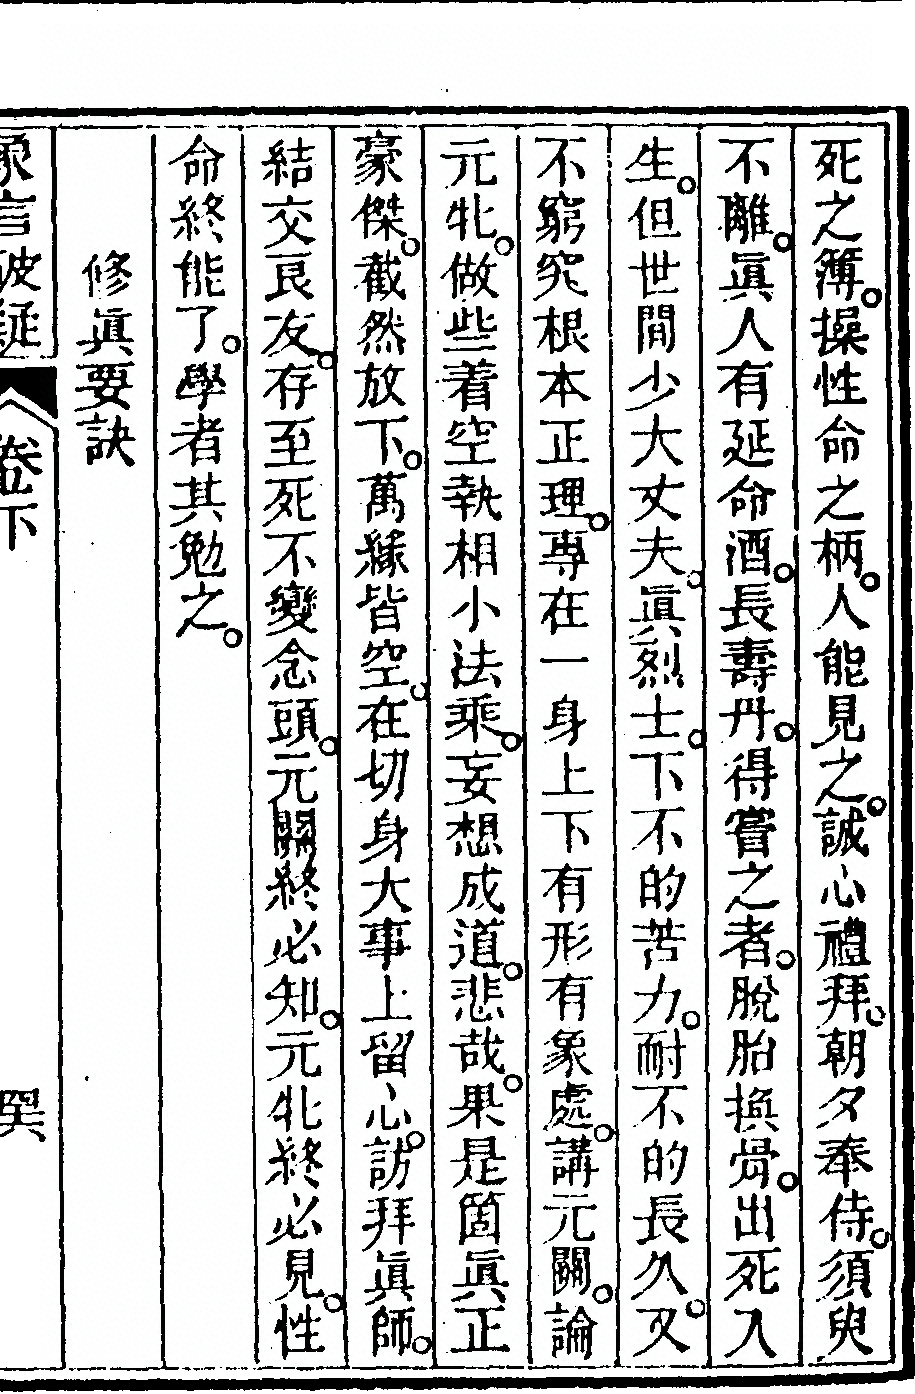 死之簿。操性命之柄。人能見之。誠心禮拜。朝夕奉侍。須臾
不離。眞人有延命酒。長壽丹。得嘗之者。脫胎換骨。出死入
生。但世間少大丈夫。眞烈士。下不的苦力。耐不的長久。又
不窮究根本正理。專在一身上下有形有象處。講元關。論
元牝。做些着空執相小法乘。妄想成道。悲哉。果是箇眞正
豪傑。截然放下。萬緣皆空。在切身大事上留心。訪拜眞師。
結交良友。存至死不變念頭。元關終必知。元牝終必見。性
命終能了。學者其勉之。
修眞要訣
象言破疑
卷下